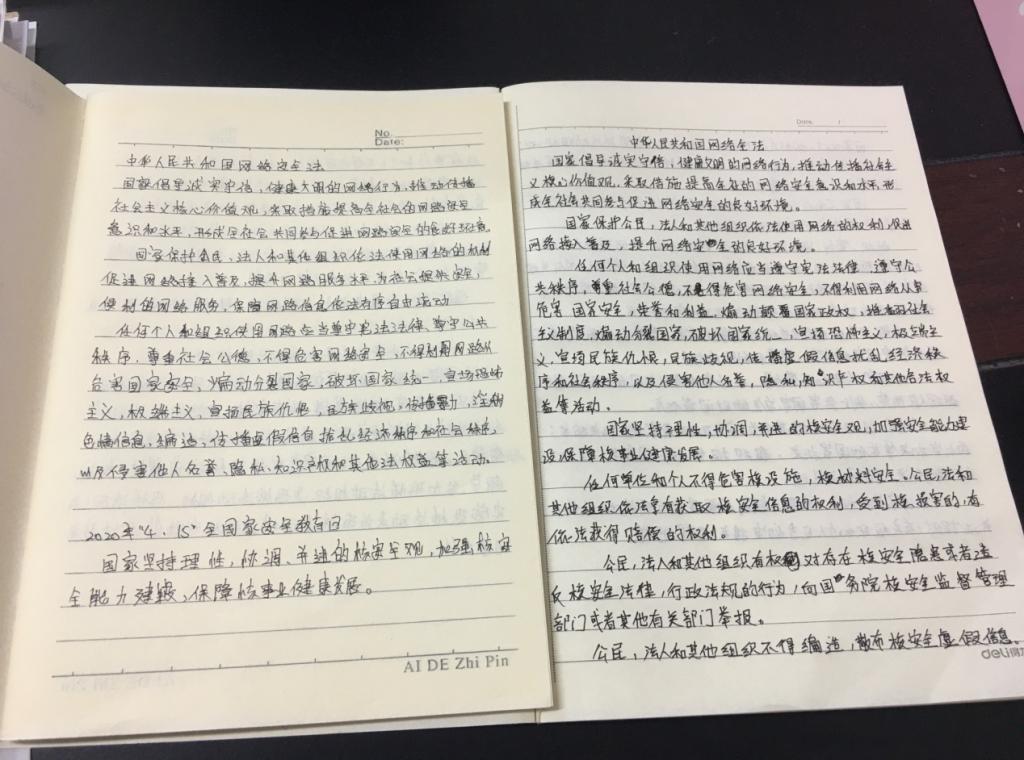 No.
Date:
中华人民共和国网络安全法
国家倡导诚实守信,健康文明的网络行为,推动传播
社会主义核心价值观,采取措施提高全社会的网络安全
意识和水平,形成全社会共同参与促进网络安全的良好环境。
国家保护公民、法人和其他组织依法使用网络的权利
促进网络接入普及,提升网络服务水平,为社会提供安全,
便利的网络服务,保障网络信息依法有序自由流动
任何个人和组织使用网络应当遵守宪法法律,遵守公共
秩序,尊重社会公德,不得危害网络安全,不得利用网络从
危害国家安全、煽动分裂国家,破坏国家统一,宣扬恐怖
主义,极端主义,宣扬民族仇恨,民族歧视,传播暴力,淫秽
色情信息,编造,传播虚假信息扰乱经济秩序和社会秩序,
以及侵害他人名誉、隐私、知识产权和其他法权益等活动。
2020年"4·15"全国家安全教育日
国家坚持理性,协调、并进的核安全观,加强核安
全能力建设,保障核事业健康发展。
AI DE Zhi Pin
Date. /
中华人民共和国网络全法
国家倡导诚实守信,健康文明的网络行为,推动传播社会主
义核心价值观,采取措施提高全社的网络安全意识和水平,形
成全社会共同参与促进网络安全的良好环境。
国家保护公民,法人和其他组织依法使用网络的权利,促进
网络接入普及,提升网络安全的良好环境。
任何个人和组织使用网络应当遵守宪法法律,遵守公
共秩序,尊重社会公德,不得危害网络安全,不得利用网络从事
危害国家安全,荣誉和利益,煽动颠覆国家政权,推翻社会
主义制度,煽动分裂国家,破坏国家统一,宣扬恐怖主义,极端主
义,宣扬民族仇恨,民族歧视,传播虚假信息扰乱经济秩
序和社会秩序,以及侵害他人名誉,隐私,知识产权和其他合法权
益等活动。
国家坚持理性,协调,并进的核安全观,加强安全能力建
设,保障核事业健康发展。
任何单位和个人不得危害核设施,核材料安全。公民,法和
其他组织依法享有获取核安全信息的权利,受到核损害的,有
依法获得赔偿的权利。
公民,法人和其他组织有权对存在核安全隐患或者违
反核安全法律,行政法规的行为,向国务院核安全监督管理
部门或者其他有关部门举报。
公民,法人和其他组织不得编造,散布核安全虚假信息。
deli得力